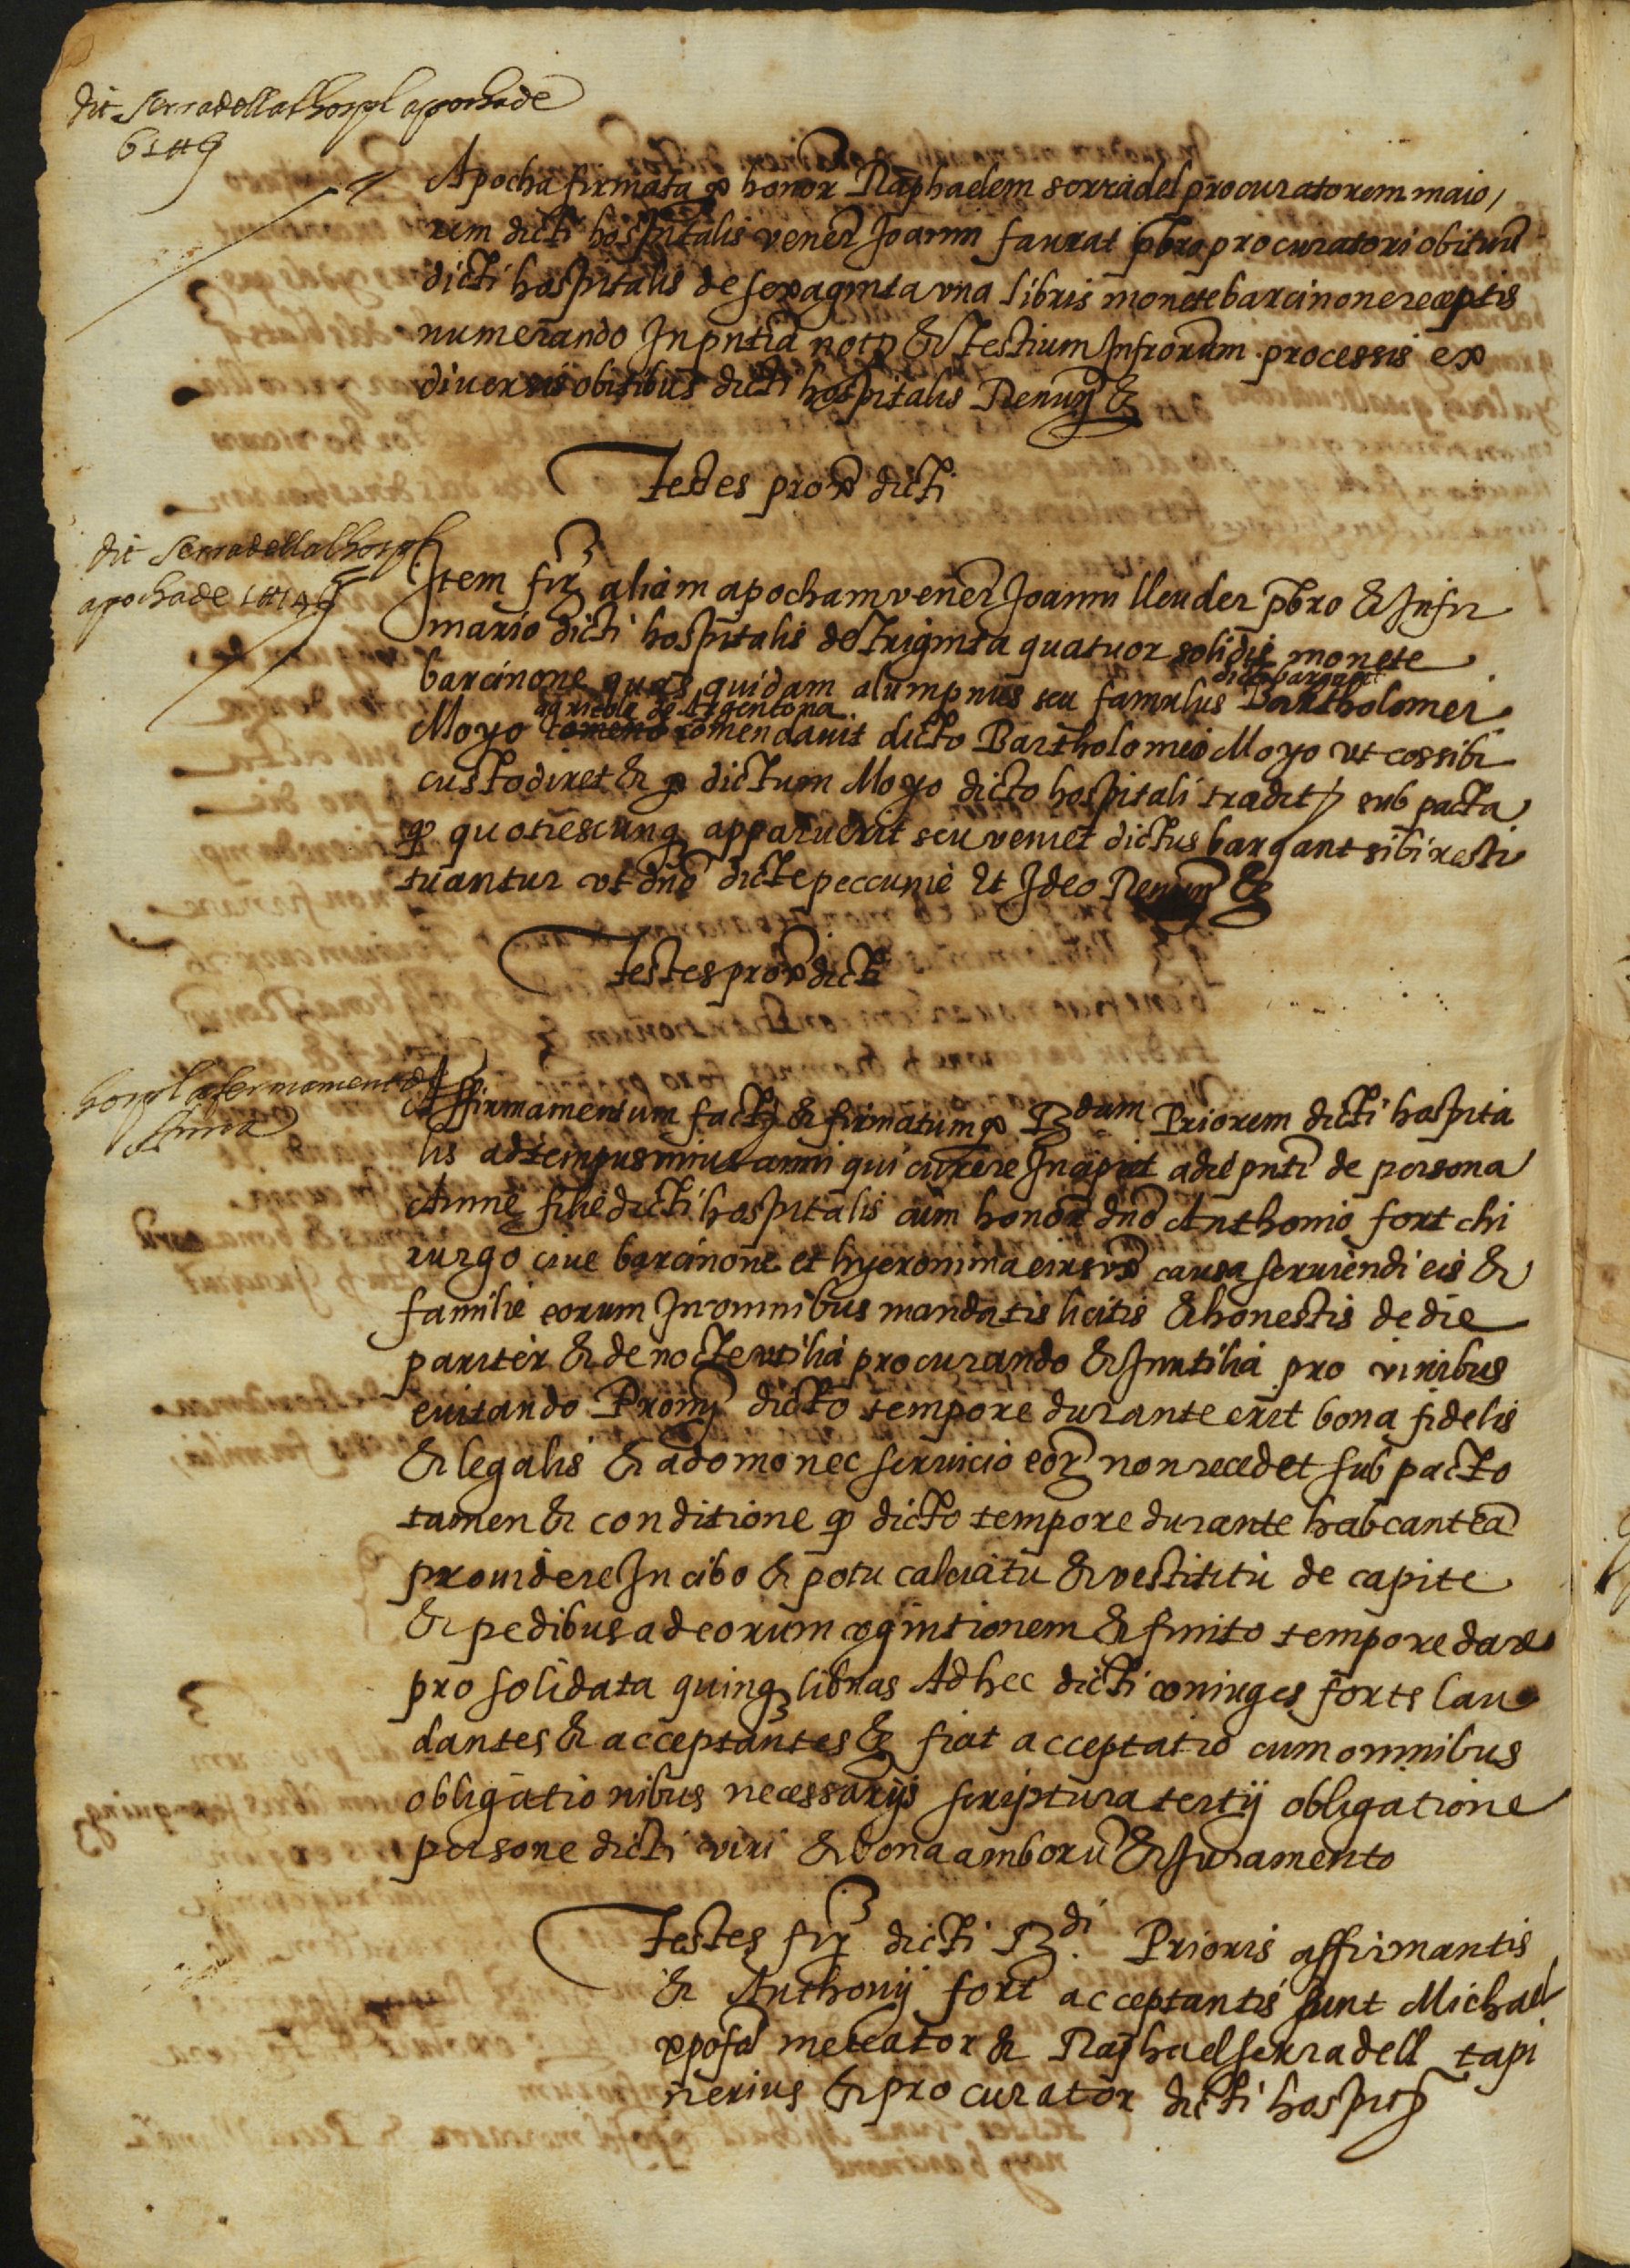 dit Serradell al hospl apocha de
61 ll 9
Apocha firmata p honor Raphaelem serradel procuratorem maio,
rem dicti hospitalis vener Joanni faurat pbro procuratori obituũ
dicti hospitalis de sexaginta una libris monete barcinone receptis
numerando In pntia notp & testium Infrorum processis ex
diversis obitibus dicti hospitalis Renuñ &
Testes prox dicti
dit Serradell al hospl
apocha de 1 ll 14 s
Item firꝫ aliam apocham vener Joanni lleuder pbro & Infir
mario dicti hospitalis de triginta quatuor solidis monete
barcinone quas quidam alumpnus seu famulus dict bargant Bartholomei
Moyo agricole de Argentona comendavit dicto Bartholomeo Moyo ut eos sibi
custodiret & p dictum Moyo dicto hospitali tradit sub pacta
ꝙ quotiescunqꝫ apparuerit seu veniet dictus bargant sibi resti
tuantur ut dno dicte peccunie Et Ideo Renuñ &
Testes prox dicti
hospl afermament de
Anna
Affirmamentum fact & firmatum p Rꝫdum Priorem dicti hospita
lis ad tempus unius anni qui currere Incipiet a die pnti de persona
Anne filie dicti hospitalis cum honor dno Anthonio fort chi
rurgo cive barcinone et hyeronima eius ux causa serviendi eis &
familie eorum In omnibus mandatis licitis & honestis de die
pariter & de nocte utilia procurando & Inutilia pro viribus
evitando Promꝫ dicto tempore durante erit bona fidelis
& legalis & a domo nec servicio eoꝝ non recedet sub pacto
tamen & conditione ꝙ dicto tempore durante habeant eã
providere In cibo & potu calciatu & vestititu de capite
& pedibus ad eorum cognitionem & finito tempore dare
pro solidata quinqꝫ libras Ad hec dicti coniuges forts lau
dantes & acceptantes & fiat acceptatio cum omnibus
obligationibus necessarijs scriptura tertij obligatione
persone dicti viri & bona amborũ & Juramento
Testes firꝫ dicti Rꝫdi. Prioris affirmantis
& Anthonij fort acceptantis sunt Michael
mercator & Raphael serradell tapi
nerius & procurator dicti hospitꝭ